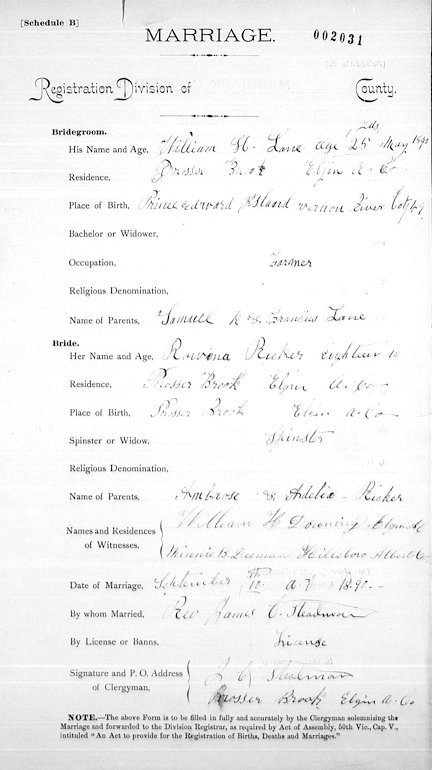 [Schedule B]
MARRIAGE.
002031
Registration Division of County.
Bridegroom.
His Name and Age, William H. Lane age 25 May 1890
Residence, Prosser Brook Elgin A. Co
Place of Birth, Prince Edward Island Vernon River Lot 49
Bachelor or Widower,
Occupation, Farmer
Religious Denomination,
Name of Parents, Samuel & Francies Lane
Bride.
Her Name and Age, Rowena Ricker eighteen
Residence, Prosser Brook Elgin A. Co
Place of Birth, Prosser Brook Elgin A. Co
Spinster or Widow, Spinster
Religious Denomination,
Name of Parents, Ambrose & Adelia Ricker
Names and Residences of Witnesses. William H Downing Elgin
Minnie B. Hillsboro Albert Co
Date of Marriage, September 10th A.D. 1890
By whom Married, Rev James C. Steadman
By License or Banns, License
Signature and P. O. Address of Clergyman, J C Steadman
Prosser Brook Elgin A. Co
NOTE.—The above Form is to be filled in fully and accurately by the Clergyman solemnizing the
Marriage and forwarded to the Division Registrar, as required by Act of Assembly, 50th Vic., Cap. V.,
intituled "An Act to provide for the Registration of Births, Deaths and Marriages."